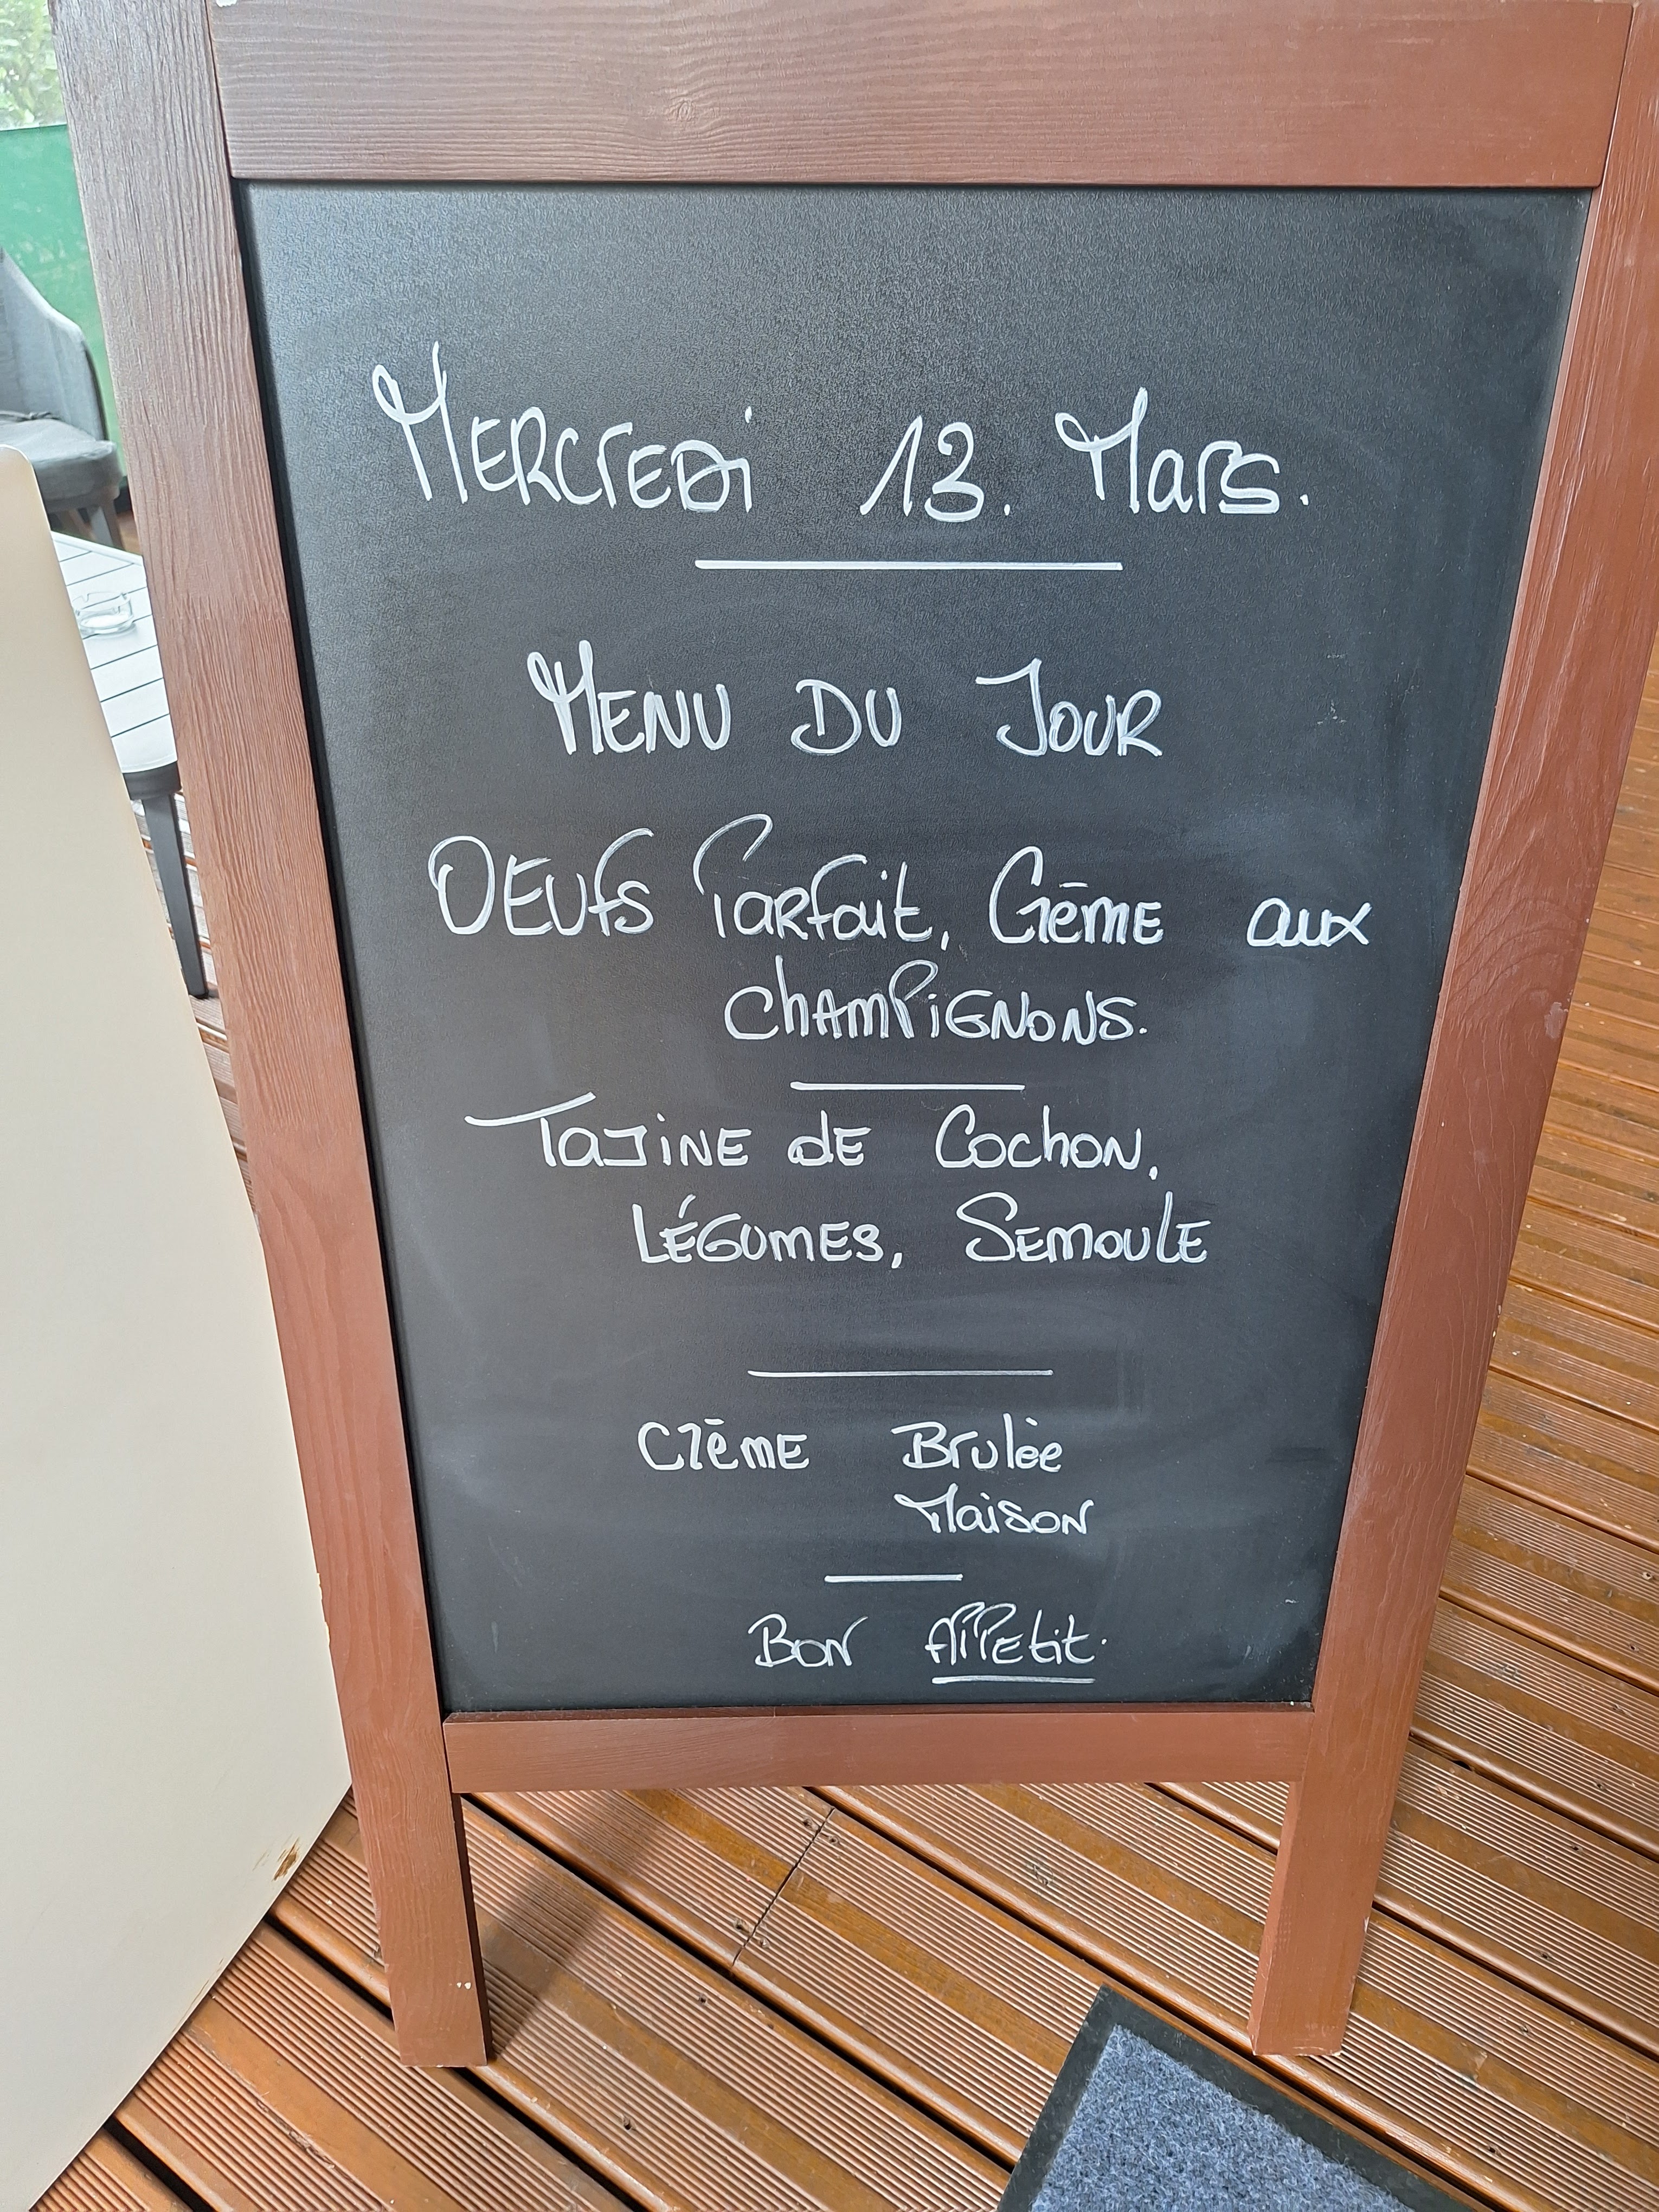 Mercredi 13. Mars.
Menu du Jour
Oeufs Parfait, Crēme aux
champignons.
Tajine de Cochon,
Légumes, Semoule
Crēme Brulèe
Maison
Bon Appetit.